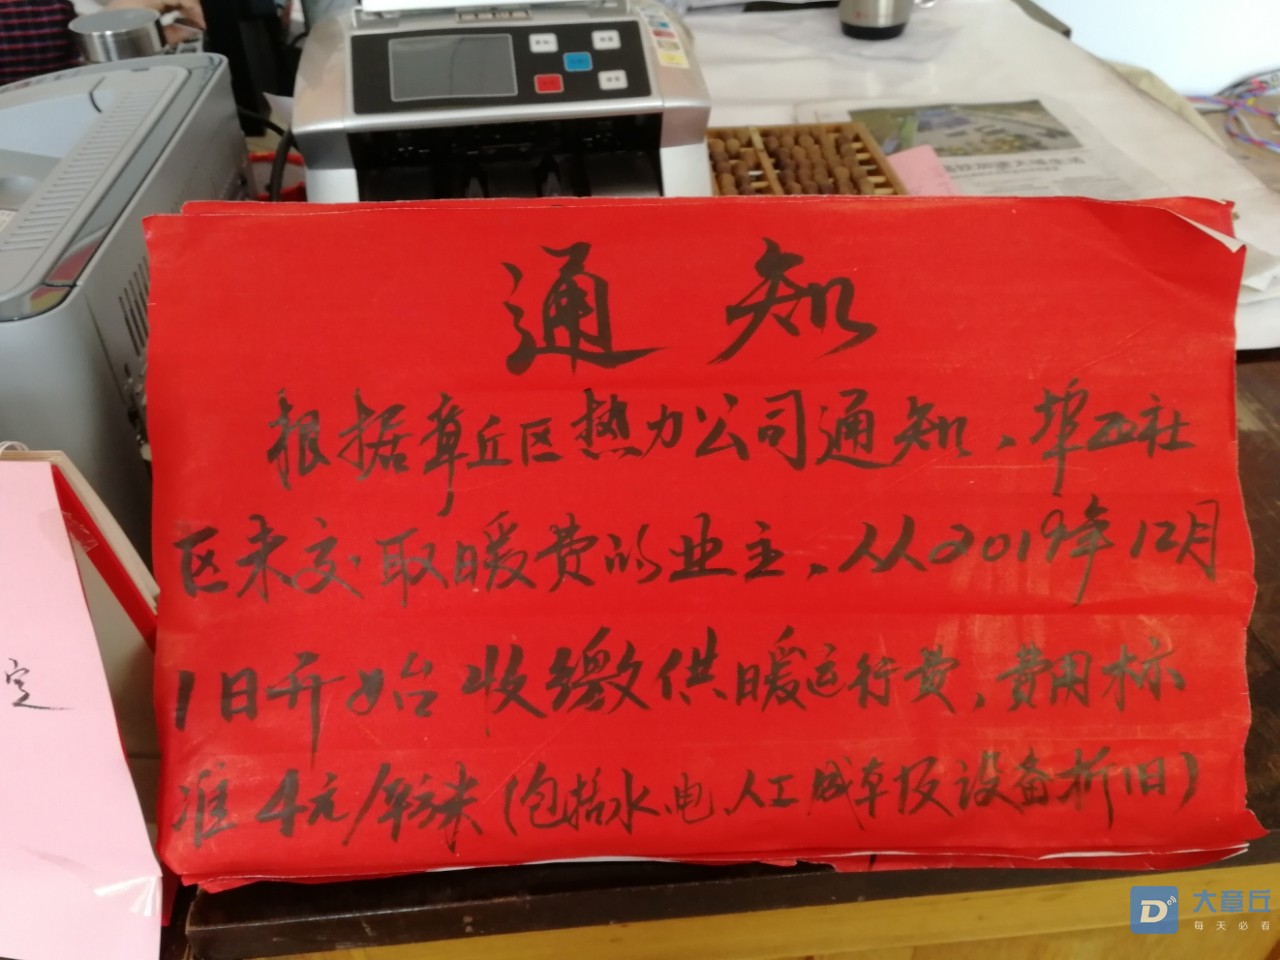 通知
根据章丘区热力公司通知、埠西社
区未交取暖费的业主、从2019年12月
1日开始收缴供暖运行费,费用标
准4元/平方米(包括水、电、人工成本及设备折旧)
定
大章丘
每天必看